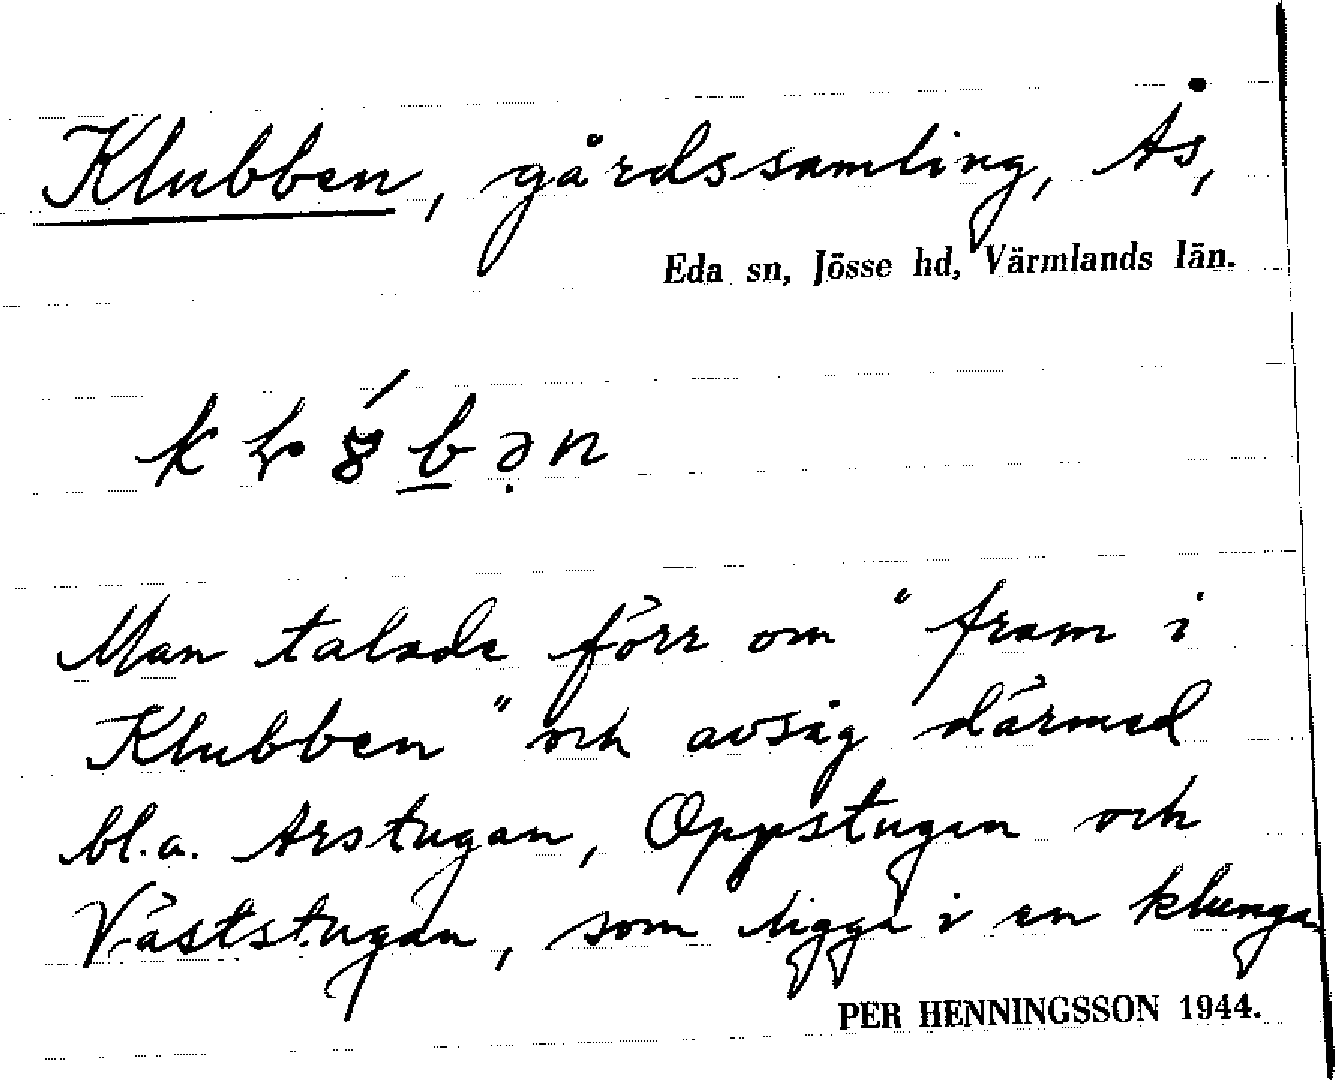 Klubben, gårdssamling, Ås,
Eda sn, Jösse hd, Värmlands län.
Man talade förr om "fram i
Klubben" och avsåg därmed
bl.a. Arstugan, Oppstugan och
Väststugan, som ligga i en klunga
PER HENNINGSSON 1944.